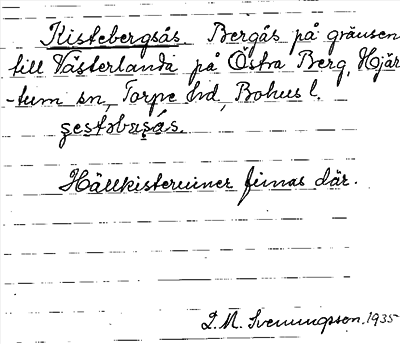 Kistebergsås. Bergås på gränsen
till Västerlanda på Östra Berg, Hjär
-tum sn, Torpe hd, Bohus l.
Hällkisteruiner finnas där.
S. M. Svenungsson. 1935